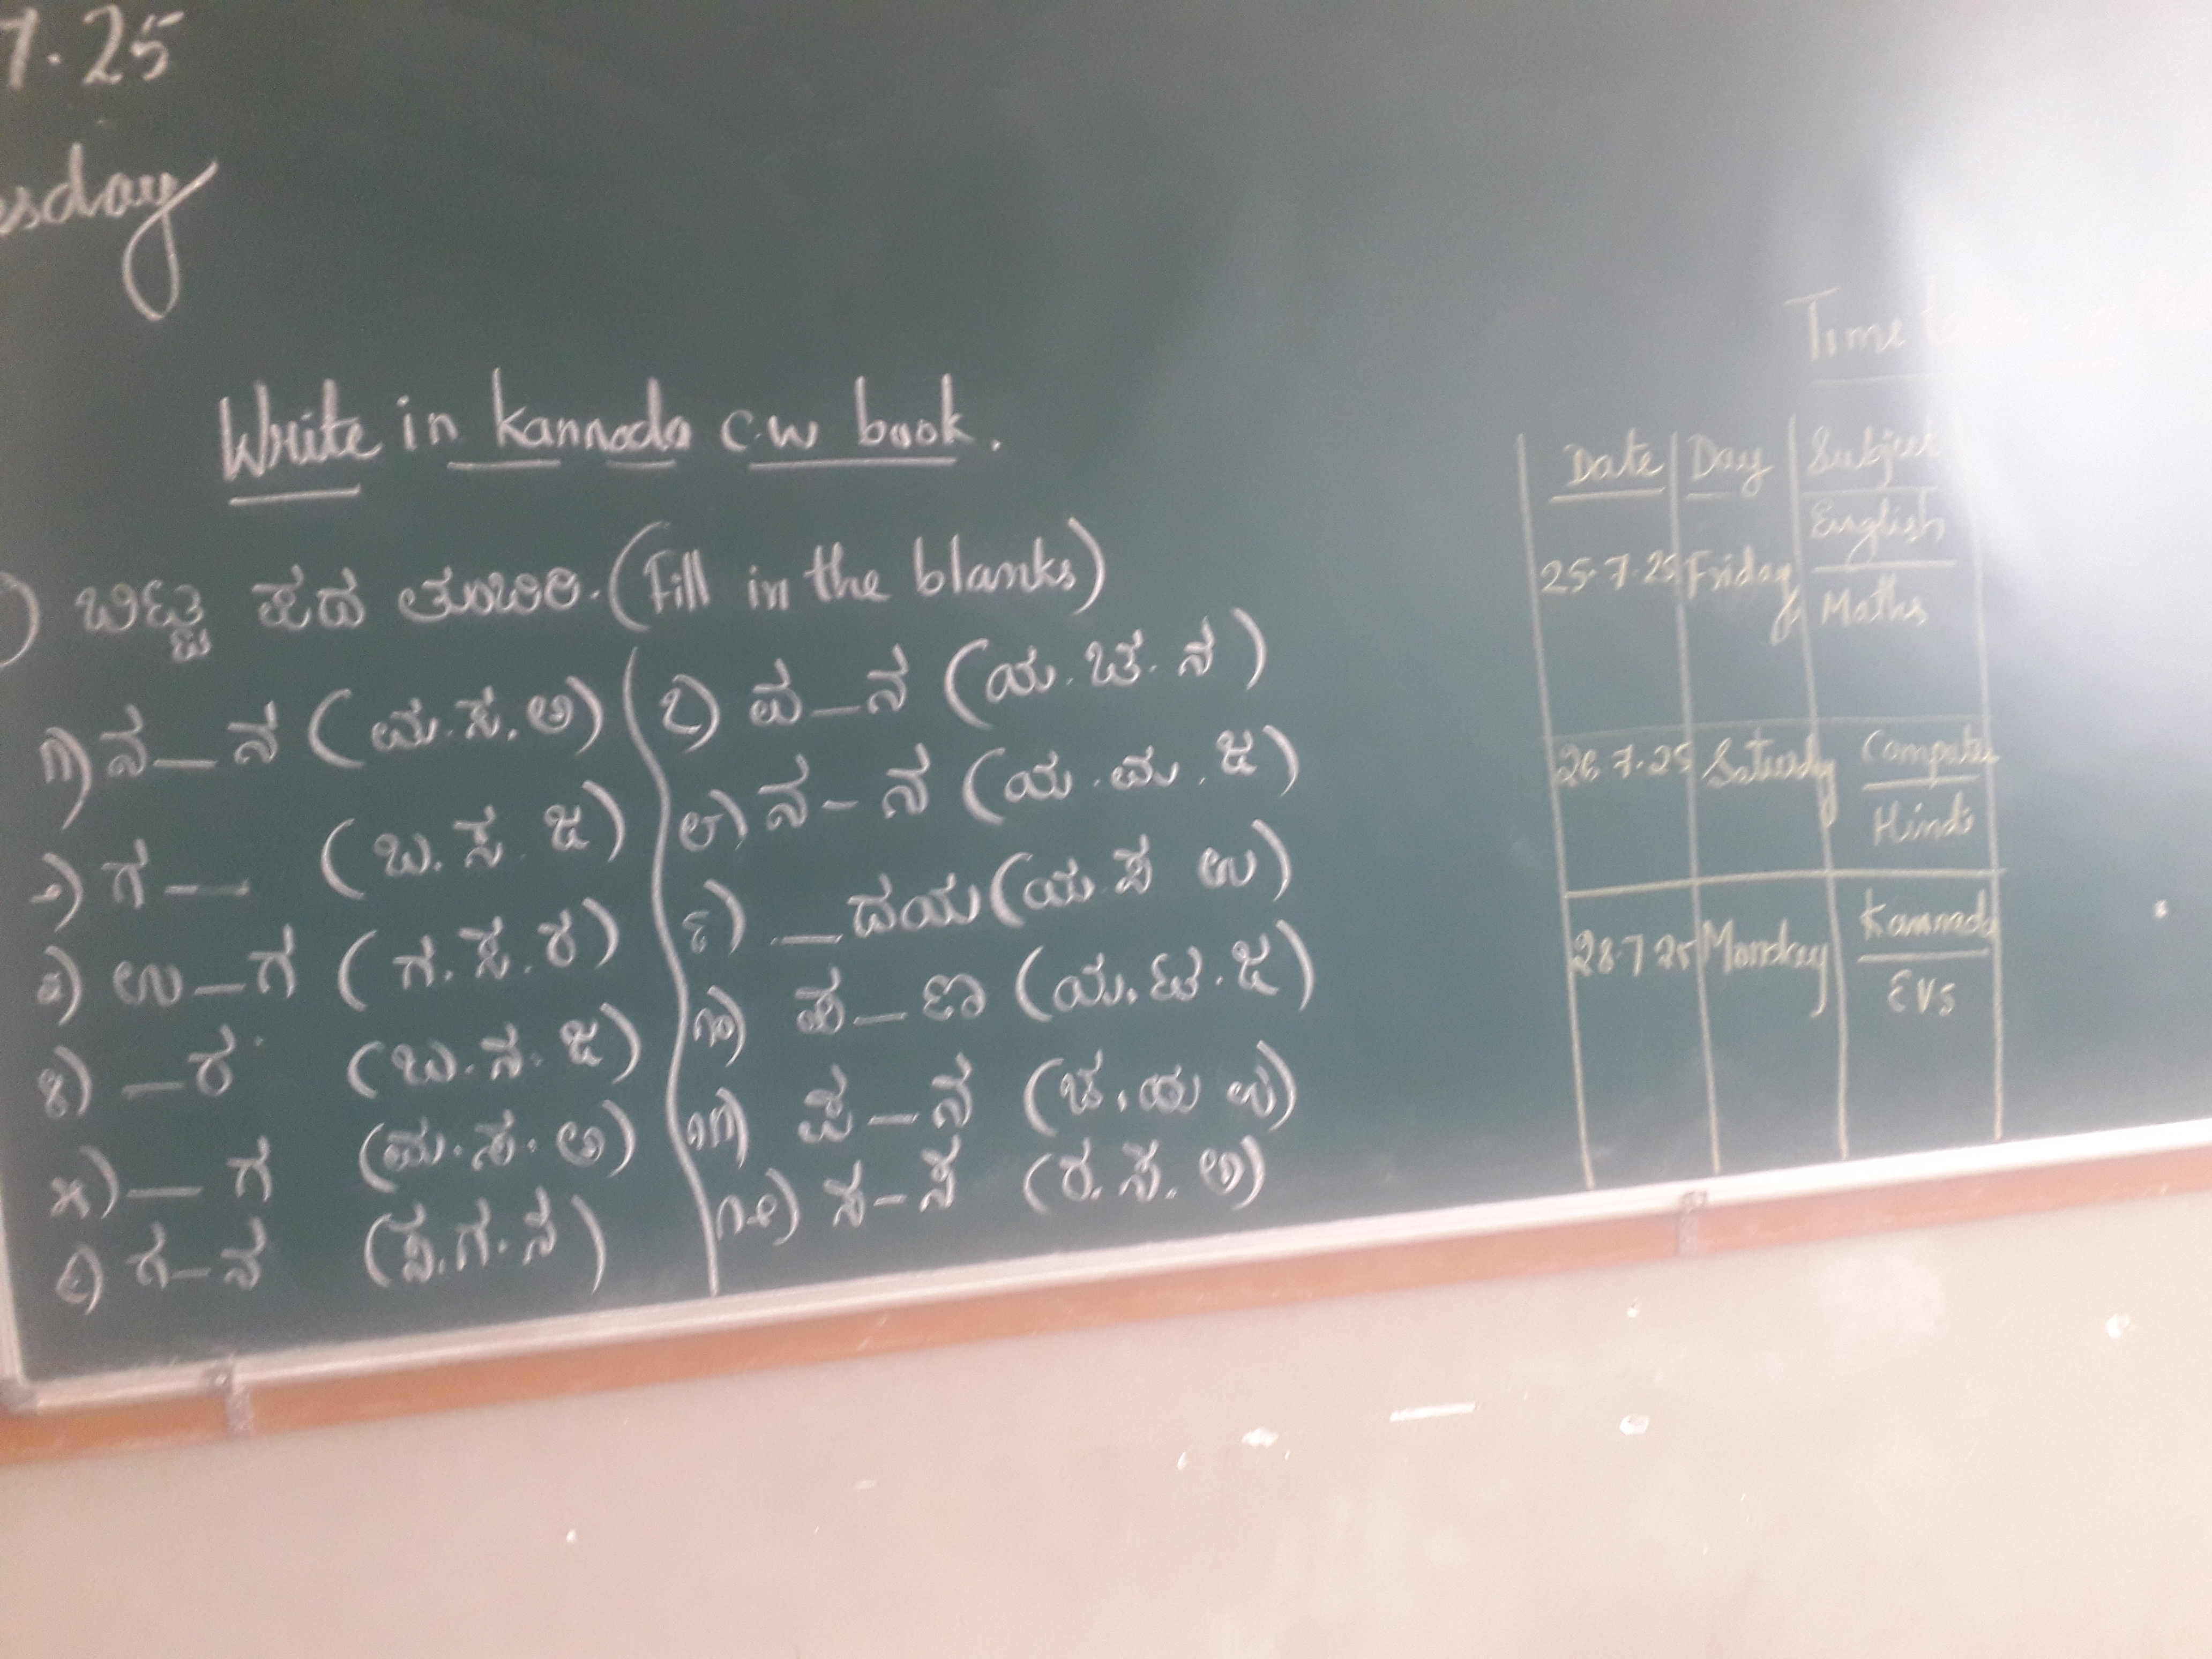 7.25
sday
Write in kannada C.W book.
) ಬಿಟ್ಟ ಪದ ತುಂಬಿರಿ. (Fill in the blanks)
೧) ನ_ನ (ಮ.ಸ.ಅ)
೨) ಗ_ (ಬ.ಸ.ಜ)
೩) ಉ_ಗ (ಗ.ಸ.ರ)
೪) _ರ (ಬ.ನ.ಜ)
೫) _ಗ (ಮ.ಸ.ಅ)
೬) ಗ_ನ (ಗ.ನ)
೭) ವ_ನ (ಯ.ಚ.ನ)
೮) ನ_ನ (ಯ.ಮ.ಜ)
೯) _ದಯ (ಯ.ಸ ಉ)
೧೦) ಹ_ಣ (ಯ.ಟ.ಜ)
೧೧) ಪ_ನ (ಚ.ಯ)
೧೨) ಸ_ಸ (ರ.ಸ.ಅ)
Time
Date Day Subject
25.7.25 Friday English
Maths
26.7.25 Saturdy Compute
Hindi
28.7.25 Monday Kannada
EVS